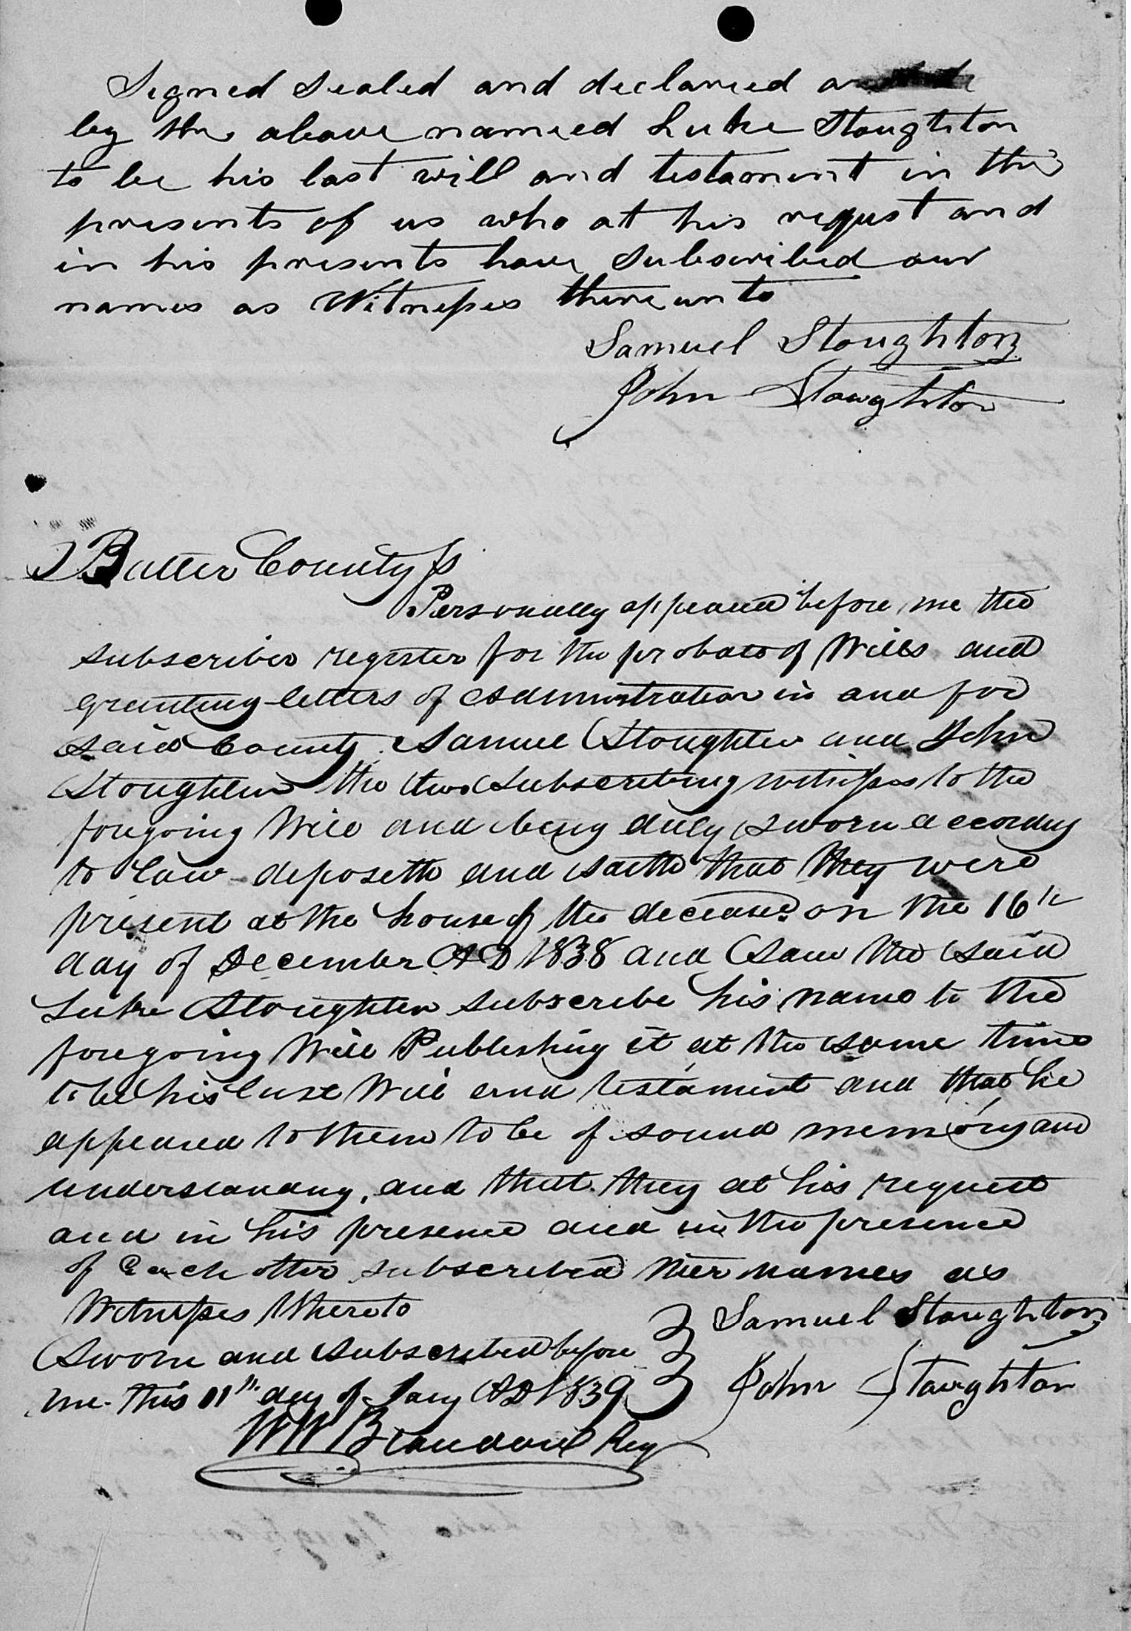 Signed Sealed and declared
by the above named Luke Stoughton
to be his last will and testament in the
presents of us who at his request and
in his presents have Subscribed our
names as Witnesses thereunto
Samuel Stoughton
John Stoughton
Butler County ss
Personally appeared before me the
subscriber register for the probate of Wills and
granting letters of administration in and for
said County Samuel Stoughton and John
Stoughton the two Subscribing witnesses to the
foregoing Will and being duly sworn according
to law deposeth and saith that they were
present at the house of the deceased on the 16th
day of December AD 1838 and saw the said
Luke Stoughton subscribe his name to the
foregoing Will Publishing it at the same time
to be his last Will and testament and that he
appeared to them to be of sound memory and
understanding, and that they at his request
and in his presence and in the presence
of Each other subscribed their names as
Witnesses thereto
Sworn and subscribed before
me this 11th day of Jany AD 1839
Samuel Stoughton
John Stoughton
WW Brandon Reg